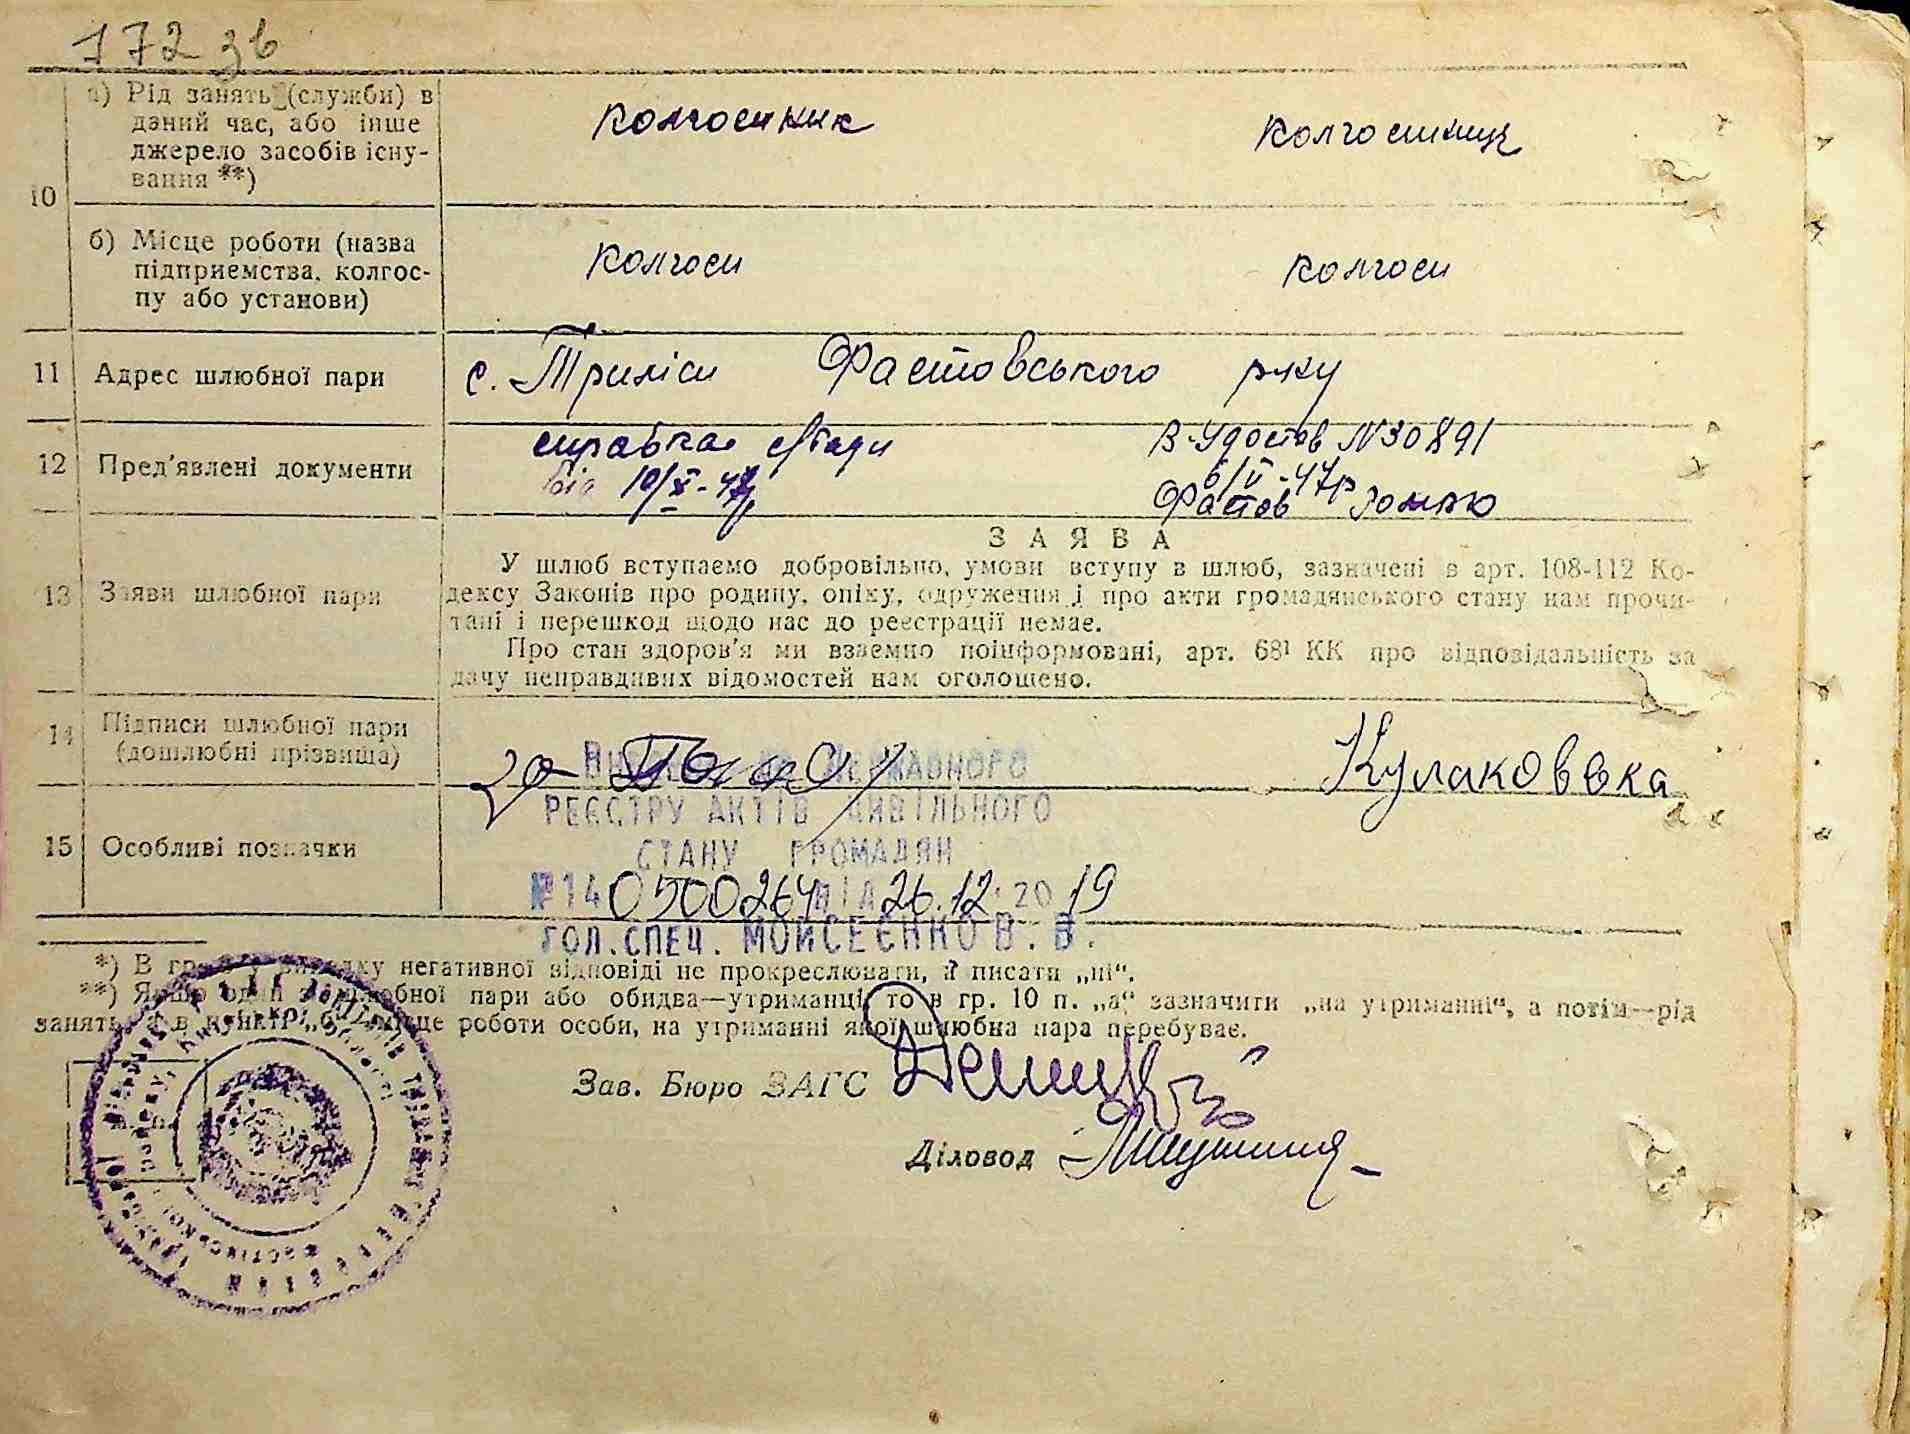 172 зв
10
а) Рід занять (служби) в
даний час, або інше
джерело засобів існу-
вання **)
колгоспник
колгоспниця
б) Місце роботи (назва
підприємства, колгос-
пу або установи)
колгосп
колгосп
11
Адрес шлюбної пари
с. Триліси Фастовського р-ну
12
Пред'явлені документи
справка с/ради
від 10/X-47р
В-Удостов N30891
6/V-47р
Фастов
13
Заяви шлюбної пари
ЗАЯВА
У шлюб вступаємо добровільно, умови вступу в шлюб, зазначені в арт. 108-112 Ко-
дексу Законів про родину, опіку, одруження і про акти громадянського стану нам прочи-
тані і перешкод щодо нас до реєстрації немає.
Про стан здоров'я ми взаємно поінформовані, арт. 68¹ КК про відповідальність за
дачу неправдивих відомостей нам оголошено.
14
Підписи шлюбної пари
(дошлюбні прізвища)
Кулаковска
ДЕРЖАВНОГО
РЕЄСТРУ АКТІВ ЦИВІЛЬНОГО
15
Особливі позначки
СТАНУ ГРОМАДЯН
№ 140500264 ВІД 26.12.2019
ГОЛ.СПЕЦ. МОЙСЕЄНКО В.В.
*) В графі у випадку негативної відповіді не прокреслювати, а писати „ні“.
**) Якщо один з шлюбної пари або обидва—утриманці, то в гр. 10 п. „а“ зазначити „на утриманні“, а потім—рід
занять, а в пункті „б“ місце роботи особи, на утриманні якої шлюбна пара перебуває.
Зав. Бюро ЗАГС
Діловод